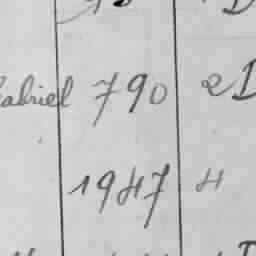 abriel 790 2D
1947 4